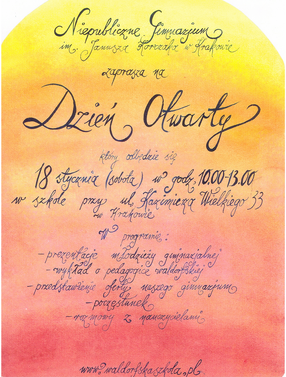 Niepubliczne Gimnazjum
im. Janusza Korczaka w Krakowie
zaprasza na
Dzień Otwarty
który odbędzie się
18 stycznia (sobota) w godz. 10.00-13.00
w szkole przy ul. Kazimierza Wielkiego 33
w Krakowie
W programie:
- prezentacje młodzieży gimnazjalnej
- wykład o pedagogice waldorfskiej
- przedstawienie oferty naszego gimnazjum
- poczęstunek
- rozmowy z nauczycielami
www.waldorfskaszkola.pl